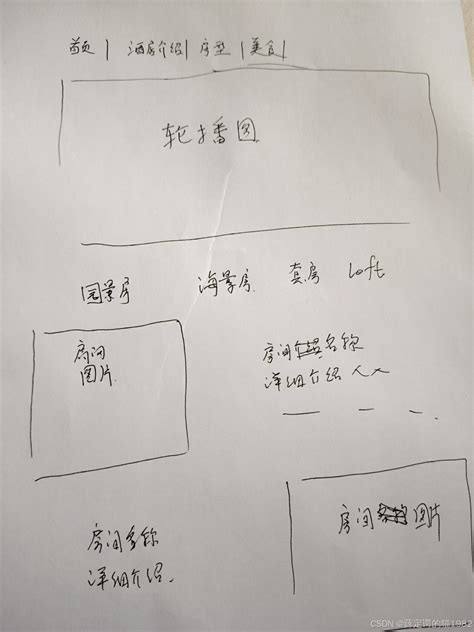 首页 | 酒店介绍 | 房型 | 美食 |
轮播图
园景房 海景房 套房 Loft
房间图片
房间名称
详细介绍
房间名称
详细介绍
房间图片
CSDN @薛定谔的猫1982